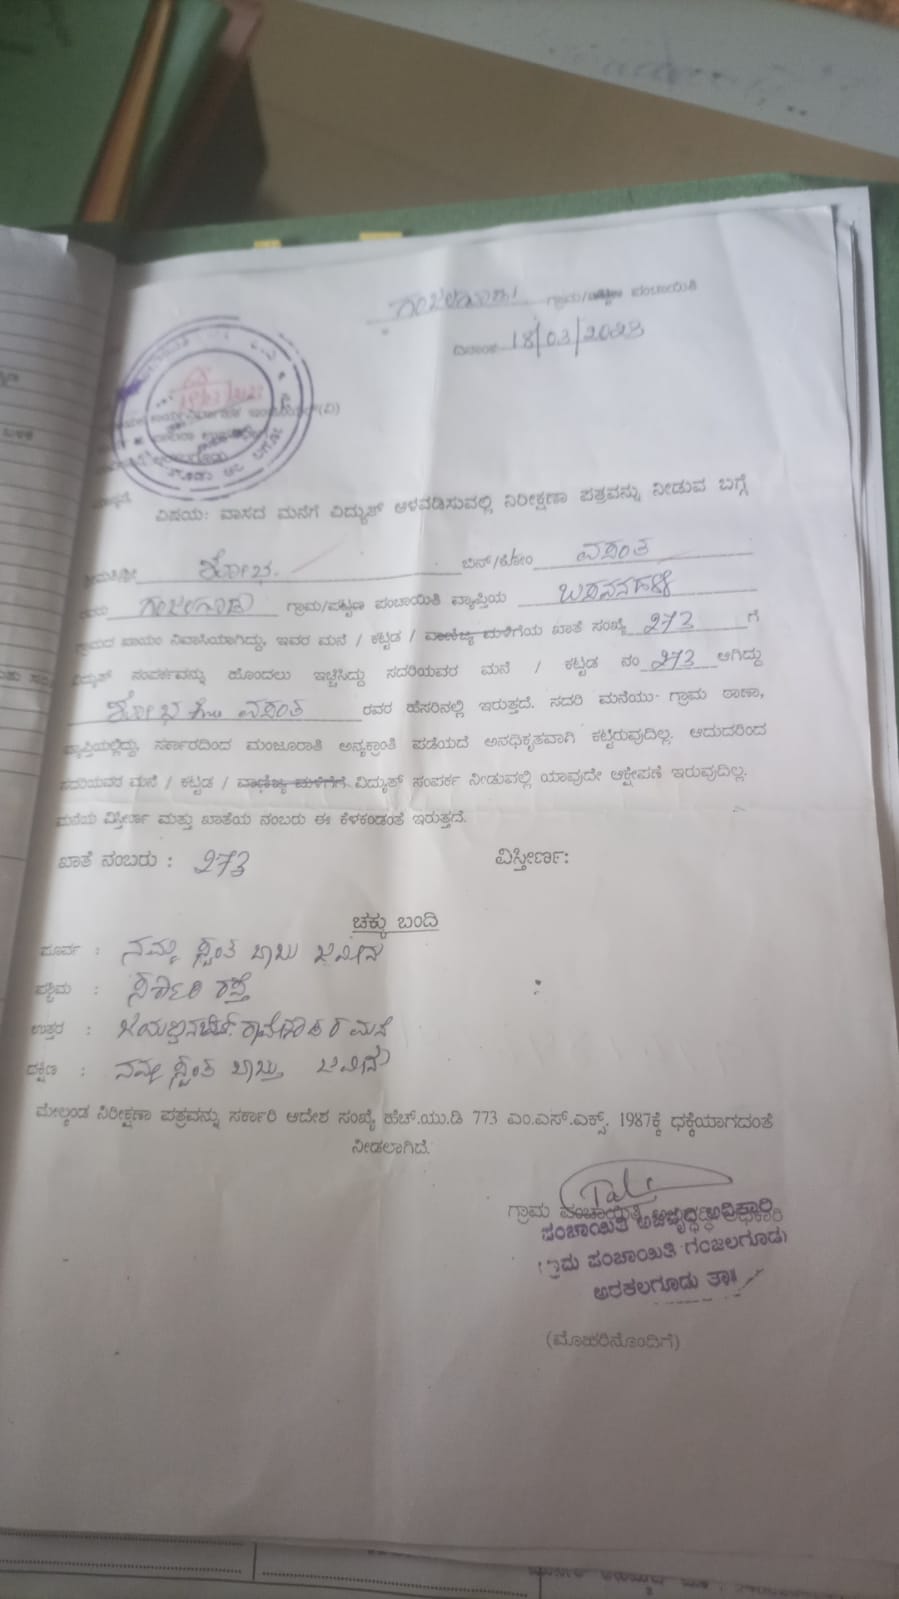 ಗ್ರಾಮ/ಪಟ್ಟಣ ಪಂಚಾಯಿತಿ
ದಿನಾಂಕ 18/03/2023
ವಿಷಯ: ವಾಸದ ಮನೆಗೆ ವಿದ್ಯುತ್ ಅಳವಡಿಸುವಲ್ಲಿ ನಿರೀಕ್ಷಣಾ ಪತ್ರವನ್ನು ನೀಡುವ ಬಗ್ಗೆ
ಶ್ರೀಮತಿ/ಶ್ರೀ ಶೋಭ ಬಿನ್/ಕೋಂ ವಸಂತ
ಗಂಜಲಗೂಡು ಗ್ರಾಮ/ಪಟ್ಟಣ ಪಂಚಾಯಿತಿ ವ್ಯಾಪ್ತಿಯ ಬಸವನಹಳ್ಳಿ
ಗ್ರಾಮದ ಖಾಯಂ ನಿವಾಸಿಯಾಗಿದ್ದು, ಇವರ ಮನೆ / ಕಟ್ಟಡ / ವಾಣಿಜ್ಯ ಮಳಿಗೆಯ ಖಾತೆ ಸಂಖ್ಯೆ 273 ಗೆ
ವಿದ್ಯುತ್ ಸಂಪರ್ಕವನ್ನು ಹೊಂದಲು ಇಚ್ಛಿಸಿದ್ದು ಸದರಿಯವರ ಮನೆ / ಕಟ್ಟಡ ನಂ 273 ಆಗಿದ್ದು
ಶೋಭ ಕೋಂ ವಸಂತ ರವರ ಹೆಸರಿನಲ್ಲಿ ಇರುತ್ತದೆ. ಸದರಿ ಮನೆಯು ಗ್ರಾಮ ಠಾಣಾ,
ವ್ಯಾಪ್ತಿಯಲ್ಲಿದ್ದು, ಸರ್ಕಾರದಿಂದ ಮಂಜೂರಾತಿ ಅನ್ಯಕ್ರಾಂತಿ ಪಡೆಯದೆ ಅನಧಿಕೃತವಾಗಿ ಕಟ್ಟಿರುವುದಿಲ್ಲ. ಆದುದರಿಂದ
ಸದರಿಯವರ ಮನೆ / ಕಟ್ಟಡ / ವಾಣಿಜ್ಯ ಮಳಿಗೆಗೆ ವಿದ್ಯುತ್ ಸಂಪರ್ಕ ನೀಡುವಲ್ಲಿ ಯಾವುದೇ ಆಕ್ಷೇಪಣೆ ಇರುವುದಿಲ್ಲ.
ಮನೆಯ ವಿಸ್ತೀರ್ಣ ಮತ್ತು ಖಾತೆಯ ನಂಬರು ಈ ಕೆಳಕಂಡಂತೆ ಇರುತ್ತದೆ.
ಖಾತೆ ನಂಬರು : 273 ವಿಸ್ತೀರ್ಣ:
ಚಕ್ಕು ಬಂದಿ
ಪೂರ್ವ : ನಮ್ಮ ಸ್ವಂತ ಬಾಬು ಜಮೀನು
ಪಶ್ಚಿಮ : ಸರ್ಕಾರಿ ರಸ್ತೆ
ಉತ್ತರ : ರ ಮನೆ
ದಕ್ಷಿಣ : ನಮ್ಮ ಸ್ವಂತ ಬಾಬ್ತು ಜಮೀನು
ಮೇಲ್ಕಂಡ ನಿರೀಕ್ಷಣಾ ಪತ್ರವನ್ನು ಸರ್ಕಾರಿ ಆದೇಶ ಸಂಖ್ಯೆ ಹೆಚ್.ಯು.ಡಿ 773 ಎಂ.ಎನ್.ಎಕ್ಸ್. 1987ಕ್ಕೆ ಧಕ್ಕೆಯಾಗದಂತೆ
ನೀಡಲಾಗಿದೆ.
ಗ್ರಾಮ ಪಂಚಾಯಿತಿ
ಪಂಚಾಯಿತಿ ಅಭಿವೃದ್ಧಿ ಅಧಿಕಾರಿ
ಗ್ರಾಮ ಪಂಚಾಯಿತಿ ಗಂಜಲಗೂಡು
ಅರಕಲಗೂಡು ತಾ॥
(ಮೊಹರಿನೊಂದಿಗೆ)